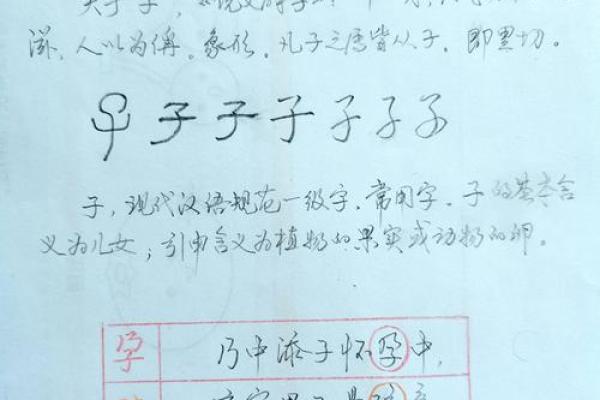 滋，人以为偁。象形。凡子之属皆从子。即里切。
子 子 子 子 子 子 子
子，现代汉语规范一级字、常用字。子的基本含
义为儿女；引申含义为植物的果实或动物的卵。
孕 乃中添子怀孕中，